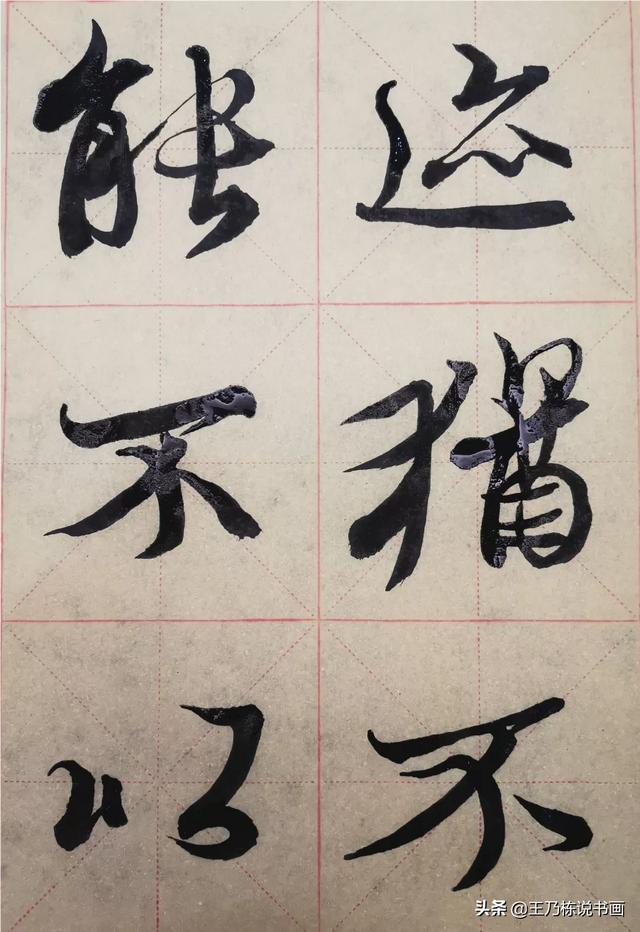 迹猶不
能不以
头条 @王乃栋说书画